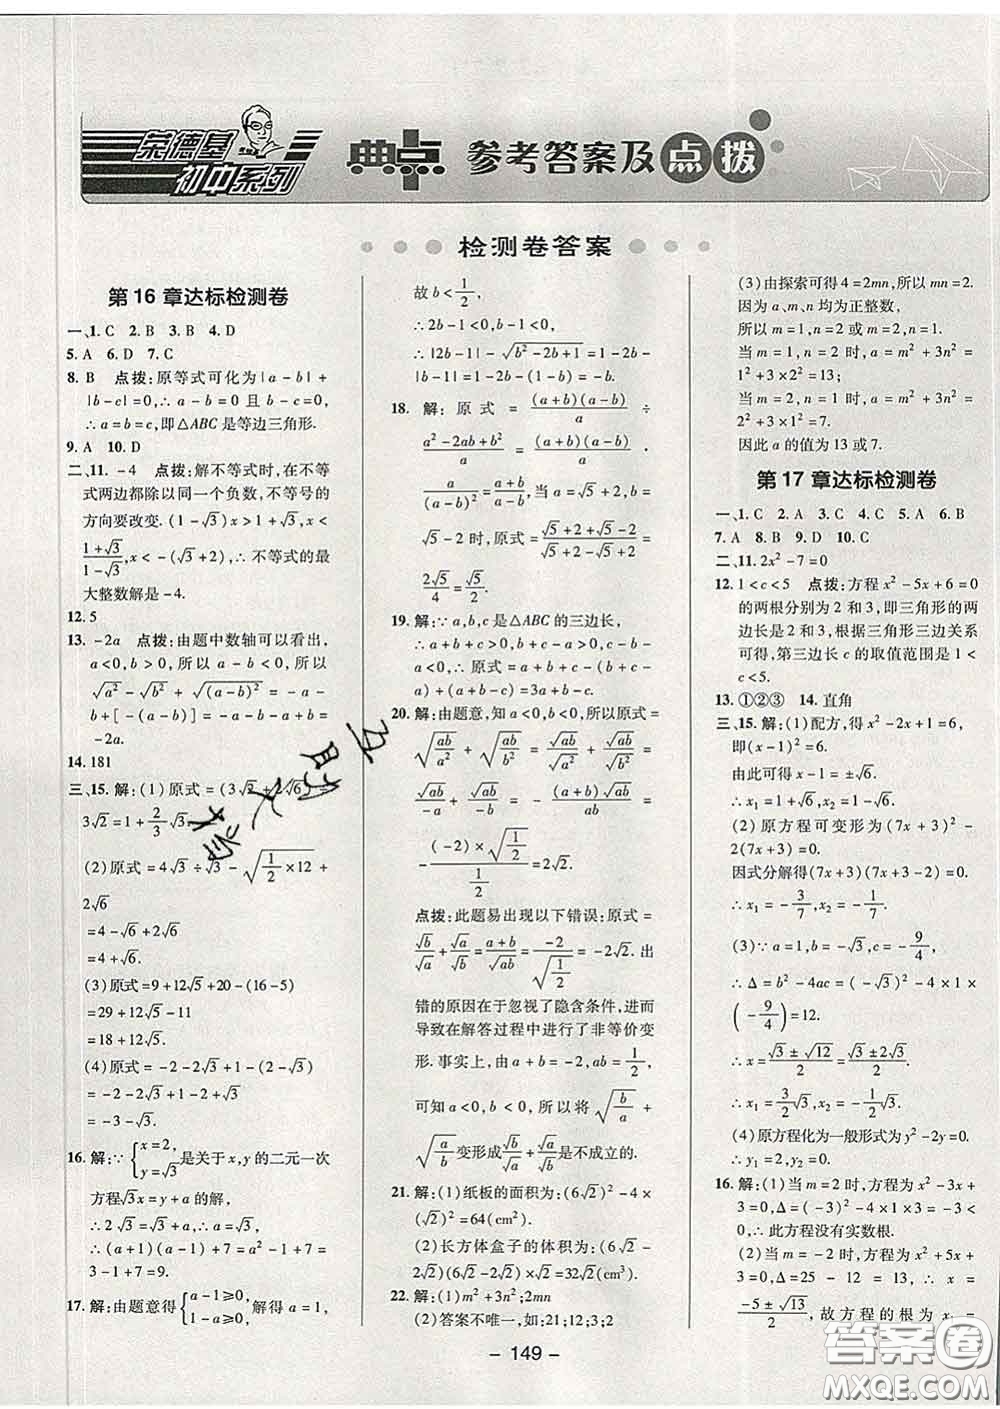 荣德基
初中系列
典点 参考答案及点拨
检测卷答案
第16章达标检测卷
一、1. C 2. B 3. B 4. D
5. A 6. D 7. C
8. B 点拨:原等式可化为|a-b|+
|b-c|=0,∴a-b=0 且 b-c=0,
∴a=b=c,即△ABC是等边三角形.
9. A 10. D
二、11. -4 点拨:解不等式时,在不等
式两边都除以同一个负数,不等号的
方向要改变.(1-√3)x>1+√3,x<
(1+√3)/(1-√3),x<-(√3+2),∴不等式的最
大整数解是-4.
12. 5
13. -2a 点拨:由题中数轴可以看出,
a<0,b>0,所以a-b<0,所以
√a²-√b²+√(a-b)²=-a-
b+[-(a-b)]=-a-b-a+b=
-2a.
14. 181
三、15. 解:(1)原式=(3√2+2√6)÷
3√2=1+2/3√3.
(2)原式=4√3÷√3-√(1/2×12)+
2√6
=4-√6+2√6
=4+√6.
(3)原式=9+12√5+20-(12-1)
=29+12√5-11
=18+12√5.
(4)原式=-2√3+1-(2-√3)
=-2-2√3+1-2+√3
=-3-√3.
16. 解:∵{x=2, y=√3}是关于x,y的二元一次
方程√3x=y+a的解,
∴2√3=√3+a,∴a=√3.
∴(a+1)(a-1)+7=a²-1+7=
3-1+7=9.
17. 解:由题意得{a-1≥0, 1-a≥0,解得a=1,
故b<1/2,
∴2b-1<0,
∴|2b-1|-√(b²-2b+1)=1-2b-
|b-1|=1-2b-(1-b)=-b.
18. 解:原式=(a+b)(a-b)/a÷
(a²-2ab+b²)/a=(a+b)(a-b)/a·
a/(a-b)²=(a+b)/(a-b),当a=√5+2,b=
√5-2时,原式=(√5+2+√5-2)/(√5+2-√5+2)=
2√5/4=√5/2.
19. 解:∵a,b,c是△ABC的三边长,
∴a+b+c>0,b+c-a>0,c-b-
a<0,∴原式=a+b+c-(b+c-
a)+(a+b-c)=3a+b-c.
20. 解:由题意,知a<0,b<0,所以原式=
√(ab/a²)+√(ab/b²)=√ab/√a²+√ab/√b²=
√ab/-a+√ab/-b=-(a+b)√ab/ab=
-(-2)×√(1/2)/(1/2)=2√2.
点拨:此题易出现以下错误:原式=
√b/√a+√a/√b=(a+b)/√ab=-2/√(1/2)=-2√2.出
错的原因在于忽视了隐含条件,进而
导致在解答过程中进行了非等价变
形.事实上,由a+b=-2,ab=1/2,
可知a<0,b<0,所以将√(b/a)+
√(a/b)变形成√b/√a+√a/√b不成立.
21. 解:(1)纸板的面积为:(6√2)²-4×
(√2)²=64(cm²).
(2)长方体盒子的体积为:(6√2-
2√2)(6√2-2√2)×√2=32√2(cm³).
22. 解:(1)m²+3n²;2mn
(2)答案不唯一,如:21;12;3;2
(3)由探索可得4=2mn,mn=2.
因为a、m、n均为正整数,
所以m=1,n=2或m=2,n=1.
当m=1,n=2时,a=m²+3n²=
1²+3×2²=13;
当m=2,n=1时,a=m²+3n²=
2²+3×1²=7.
因此a的值为13或7.
第17章达标检测卷
一、1. C 2. A 3. C 4. C 5. A 6. B
7. A 8. B 9. D 10. D
二、11. 2x²-7=0
12. 1<c<5 点拨:方程x²-5x+6=0
的两根分别为2和3,即三角形的两
边长是2和3,根据三角形三边关系
可得,第三边长c的取值范围是1<
c<5.
13. ①②③ 14. 直角
三、15. 解:(1)配方,得x²-2x+1=6,
即(x-1)²=6.
由此可得x-1=±√6.
∴x₁=1+√6,x₂=1-√6.
(2)原方程可变形为(7x+3)²-
2(7x+3)=0.
因式分解得(7x+3)(7x+3-2)=0.
∴x₁=-3/7,x₂=-1/7.
(3)∵a=1,b=-√3,c=-9/4,
∴Δ=b²-4ac=(-√3)²-4×1×
(-9/4)=12.
∴x=(√3±√12)/2=(√3±2√3)/2.
∴x₁=3/2√3,x₂=-√3/2.
(4)原方程化为一般形式为y²-2y=0.
∴y₁=2,y₂=0.
16. 解:(1)当m=2时,方程x²-3x+
3=0,Δ=(-3)²-4×1×3=-3<
0,∴此方程没有实数根.
(2)当m=-2时,方程x²+5x+
3=0,Δ=25-12=13,∴x=
(-5±√13)/2,故方程的根为x₁=
- 149 -
答案圈
MXQE.COM